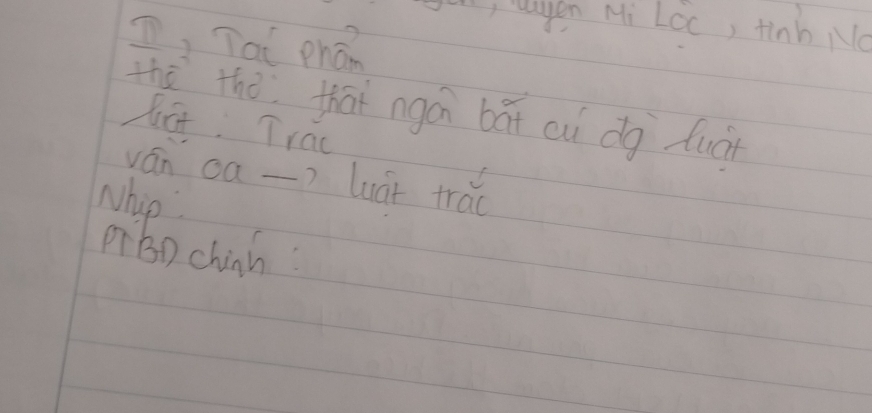 huyện Mĩ Lộc, tỉnh Na
II, Tác phẩm
thể thơ: thất ngôn bát cú đg luật
luật: Trắc
vần oa -> luật trắc
Nhịp:
PTBD chính: